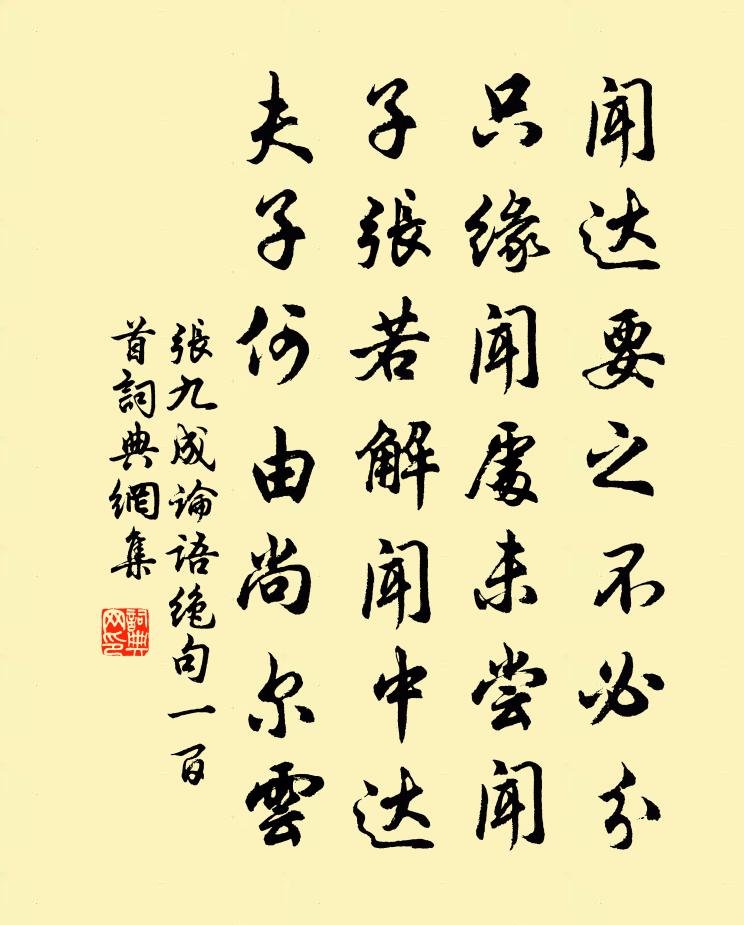 闻达要之不必分
只缘闻處未尝闻
子張若解闻中达
夫子何由尚尔雲
張九成论语绝句一百
首詞典網集
詞典網印